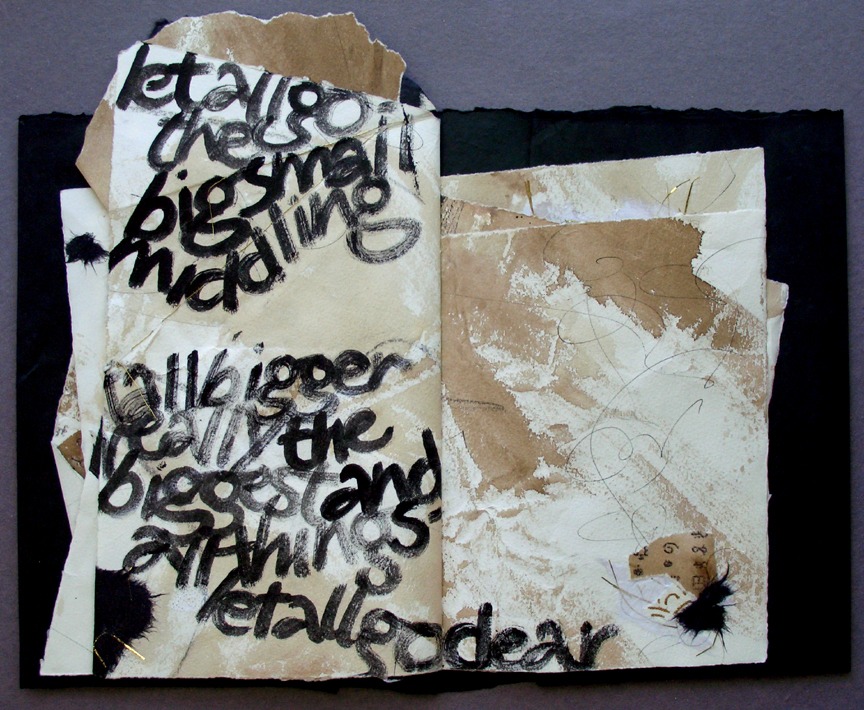 let all go
the
big small
middling
tall bigger
really the
biggest and
all things-
let all go dear